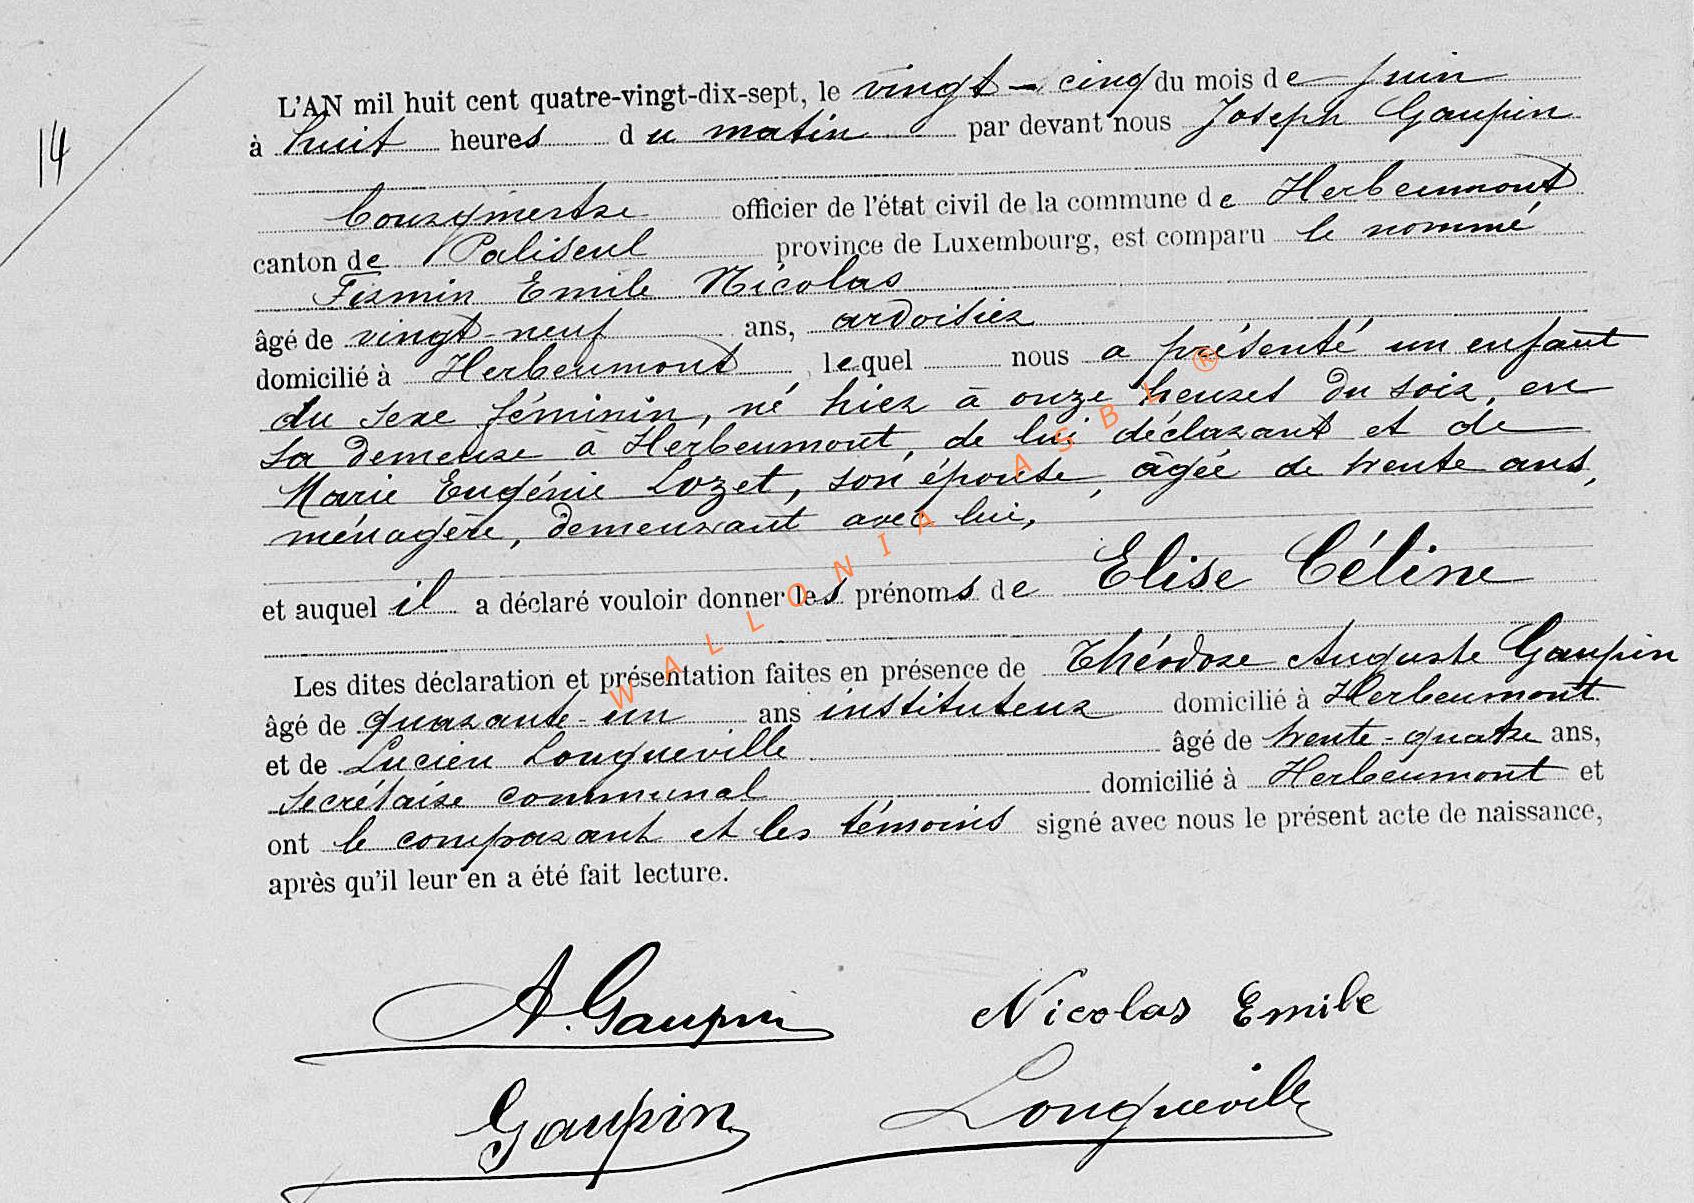 14
L'AN mil huit cent quatre-vingt-dix-sept, le vingt-cinq du mois de juin
à huit heures du matin par devant nous Joseph Gaupin
Bourgmestre officier de l'état civil de la commune de Herbeumont
canton de Paliseul province de Luxembourg, est comparu le nommé
Firmin Emile Nicolas
âgé de vingt-neuf ans, ardoisier
domicilié à Herbeumont, lequel nous a présenté un enfant
du sexe féminin, né hier à onze heures du soir, en
sa demeure à Herbeumont, de lui déclarant et de
Marie Eugénie Lozet, son épouse, âgée de trente ans,
ménagère, demeurant avec lui,
et auquel il a déclaré vouloir donner les prénoms de Elise Céline
Les dites déclaration et présentation faites en présence de Théodore Auguste Gaupin
âgé de quarante-un ans instituteur domicilié à Herbeumont
et de Lucien Longueville âgé de trente-quatre ans,
secrétaire communal domicilié à Herbeumont et
ont le comparant et les témoins signé avec nous le présent acte de naissance,
après qu'il leur en a été fait lecture.
A. Gaupin Nicolas Emile
Gaupin Longueville
WALLONIA ASBL ®